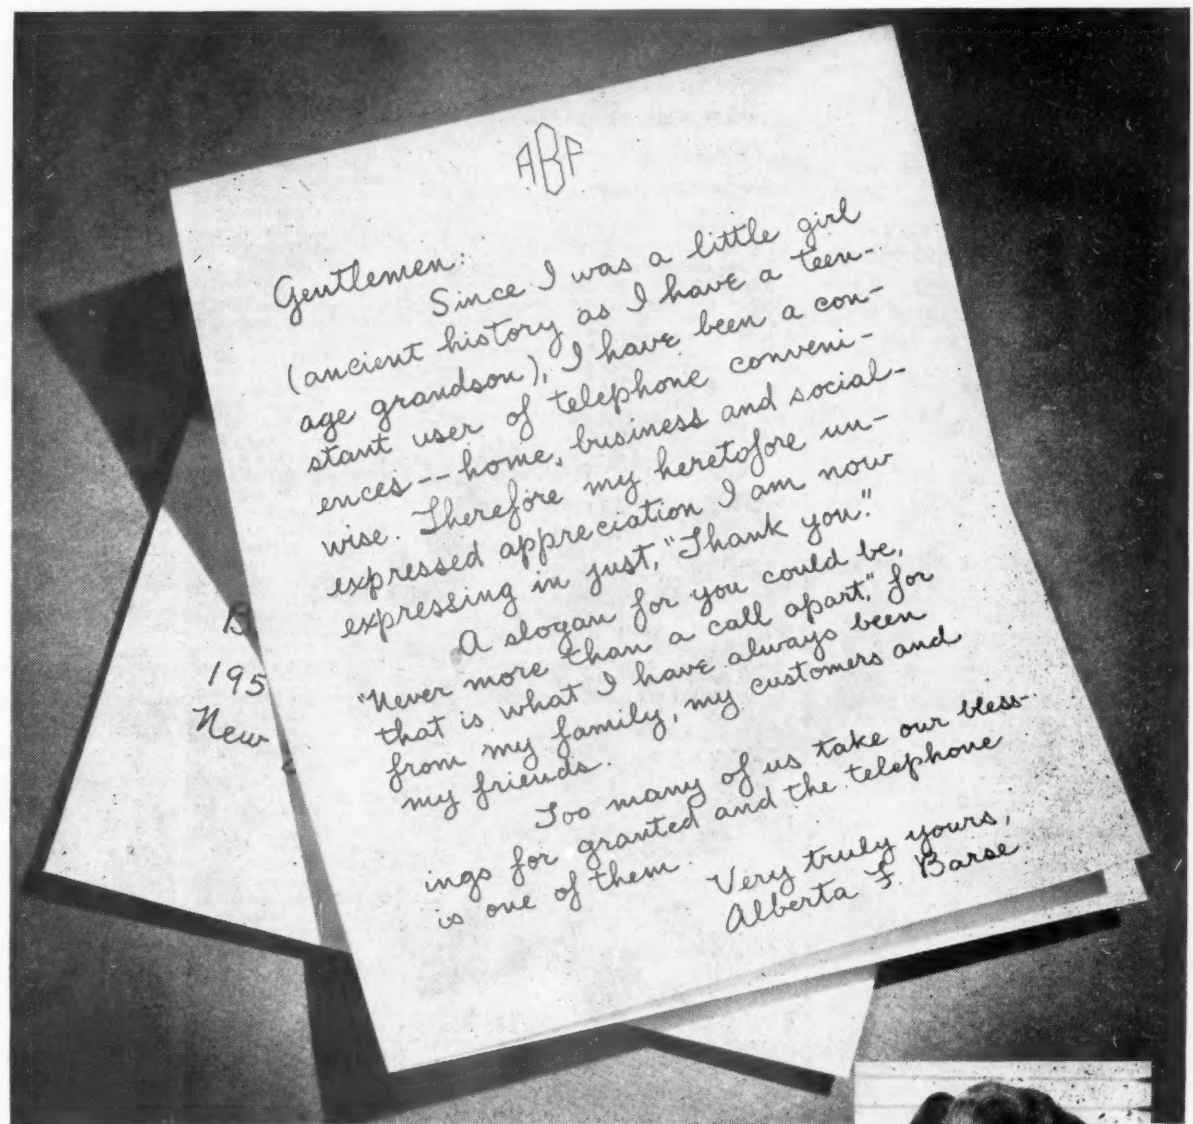 ABF
Gentlemen:
Since I was a little girl
(ancient history as I have a teen-
age grandson), I have been a con-
stant user of telephone conveni-
ences -- home, business and social-
wise. Therefore my heretofore un-
expressed appreciation I am now
expressing in just, "Thank you."
A slogan for you could be,
"Never more than a call apart," for
that is what I have always been
from my family, my customers and
my friends.
Too many of us take our bless-
ings for granted and the telephone
is one of them.
Very truly yours,
Alberta F. Barse
B
195
New